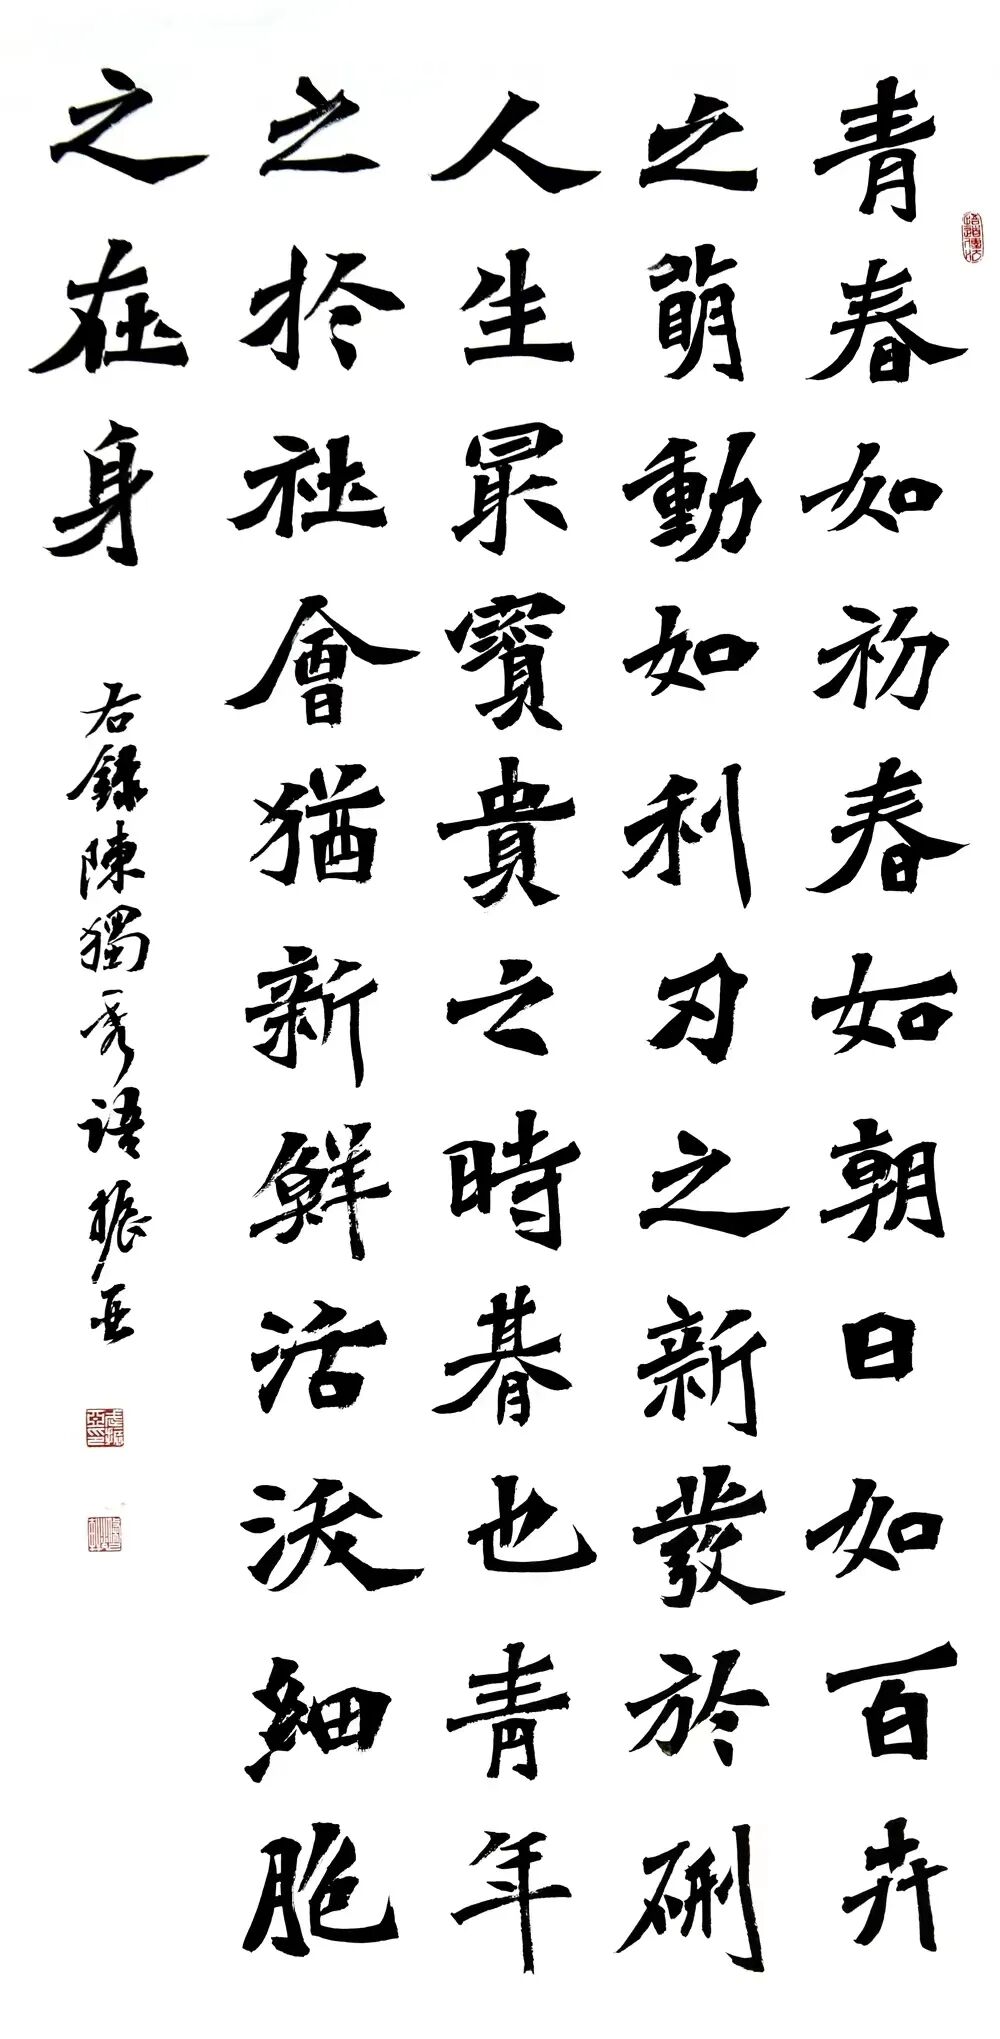 青春如初春如朝日如百卉
之萌動如利刃之新發於硎
人生最寶貴之時朞也青年
之於社會猶新鮮活沷細胞
之在身
右錄陳獨秀語振亚